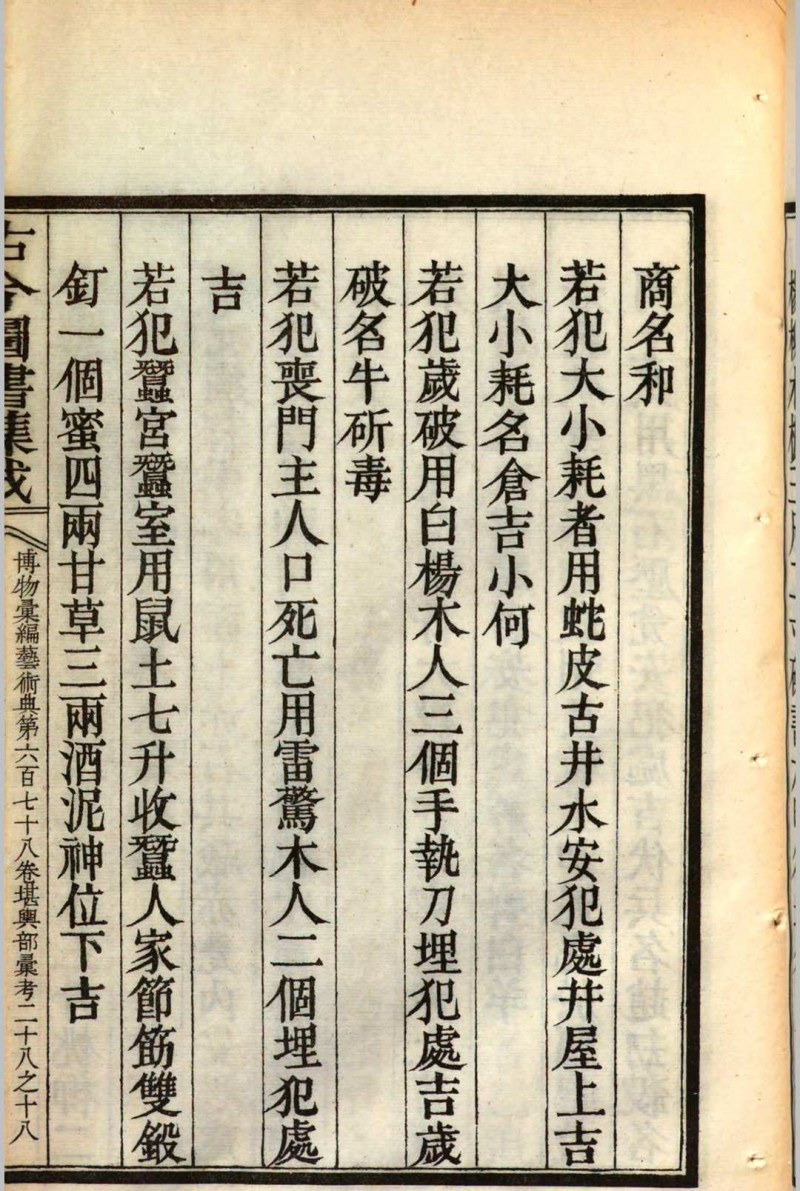 商名和
若犯大小耗者用虵皮古井水安犯處井屋上吉
大小耗名倉吉小何
若犯歲破用白楊木人三個手執刀埋犯處吉歲
破名牛斫毒
若犯喪門主人口死亡用雷驚木人二個埋犯處
吉
若犯蠶宮蠶室用鼠土七升收蠶人家節筋雙鍛
釘一個蜜四兩甘草三兩酒泥神位下吉
古今圖書集成
博物彙編藝術典第六百七十八卷堪輿部彙考二十八之十八